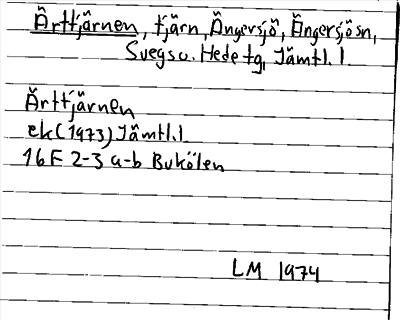 Ärttjärnen, tjärn, Ängersjö, Ängersjösn,
Svegs o. Hede tg, Jämtl. l
Ärttjärnen
ek (1973) Jämtl. l
16 F 2-3 a-b Bukölen
LM 1974